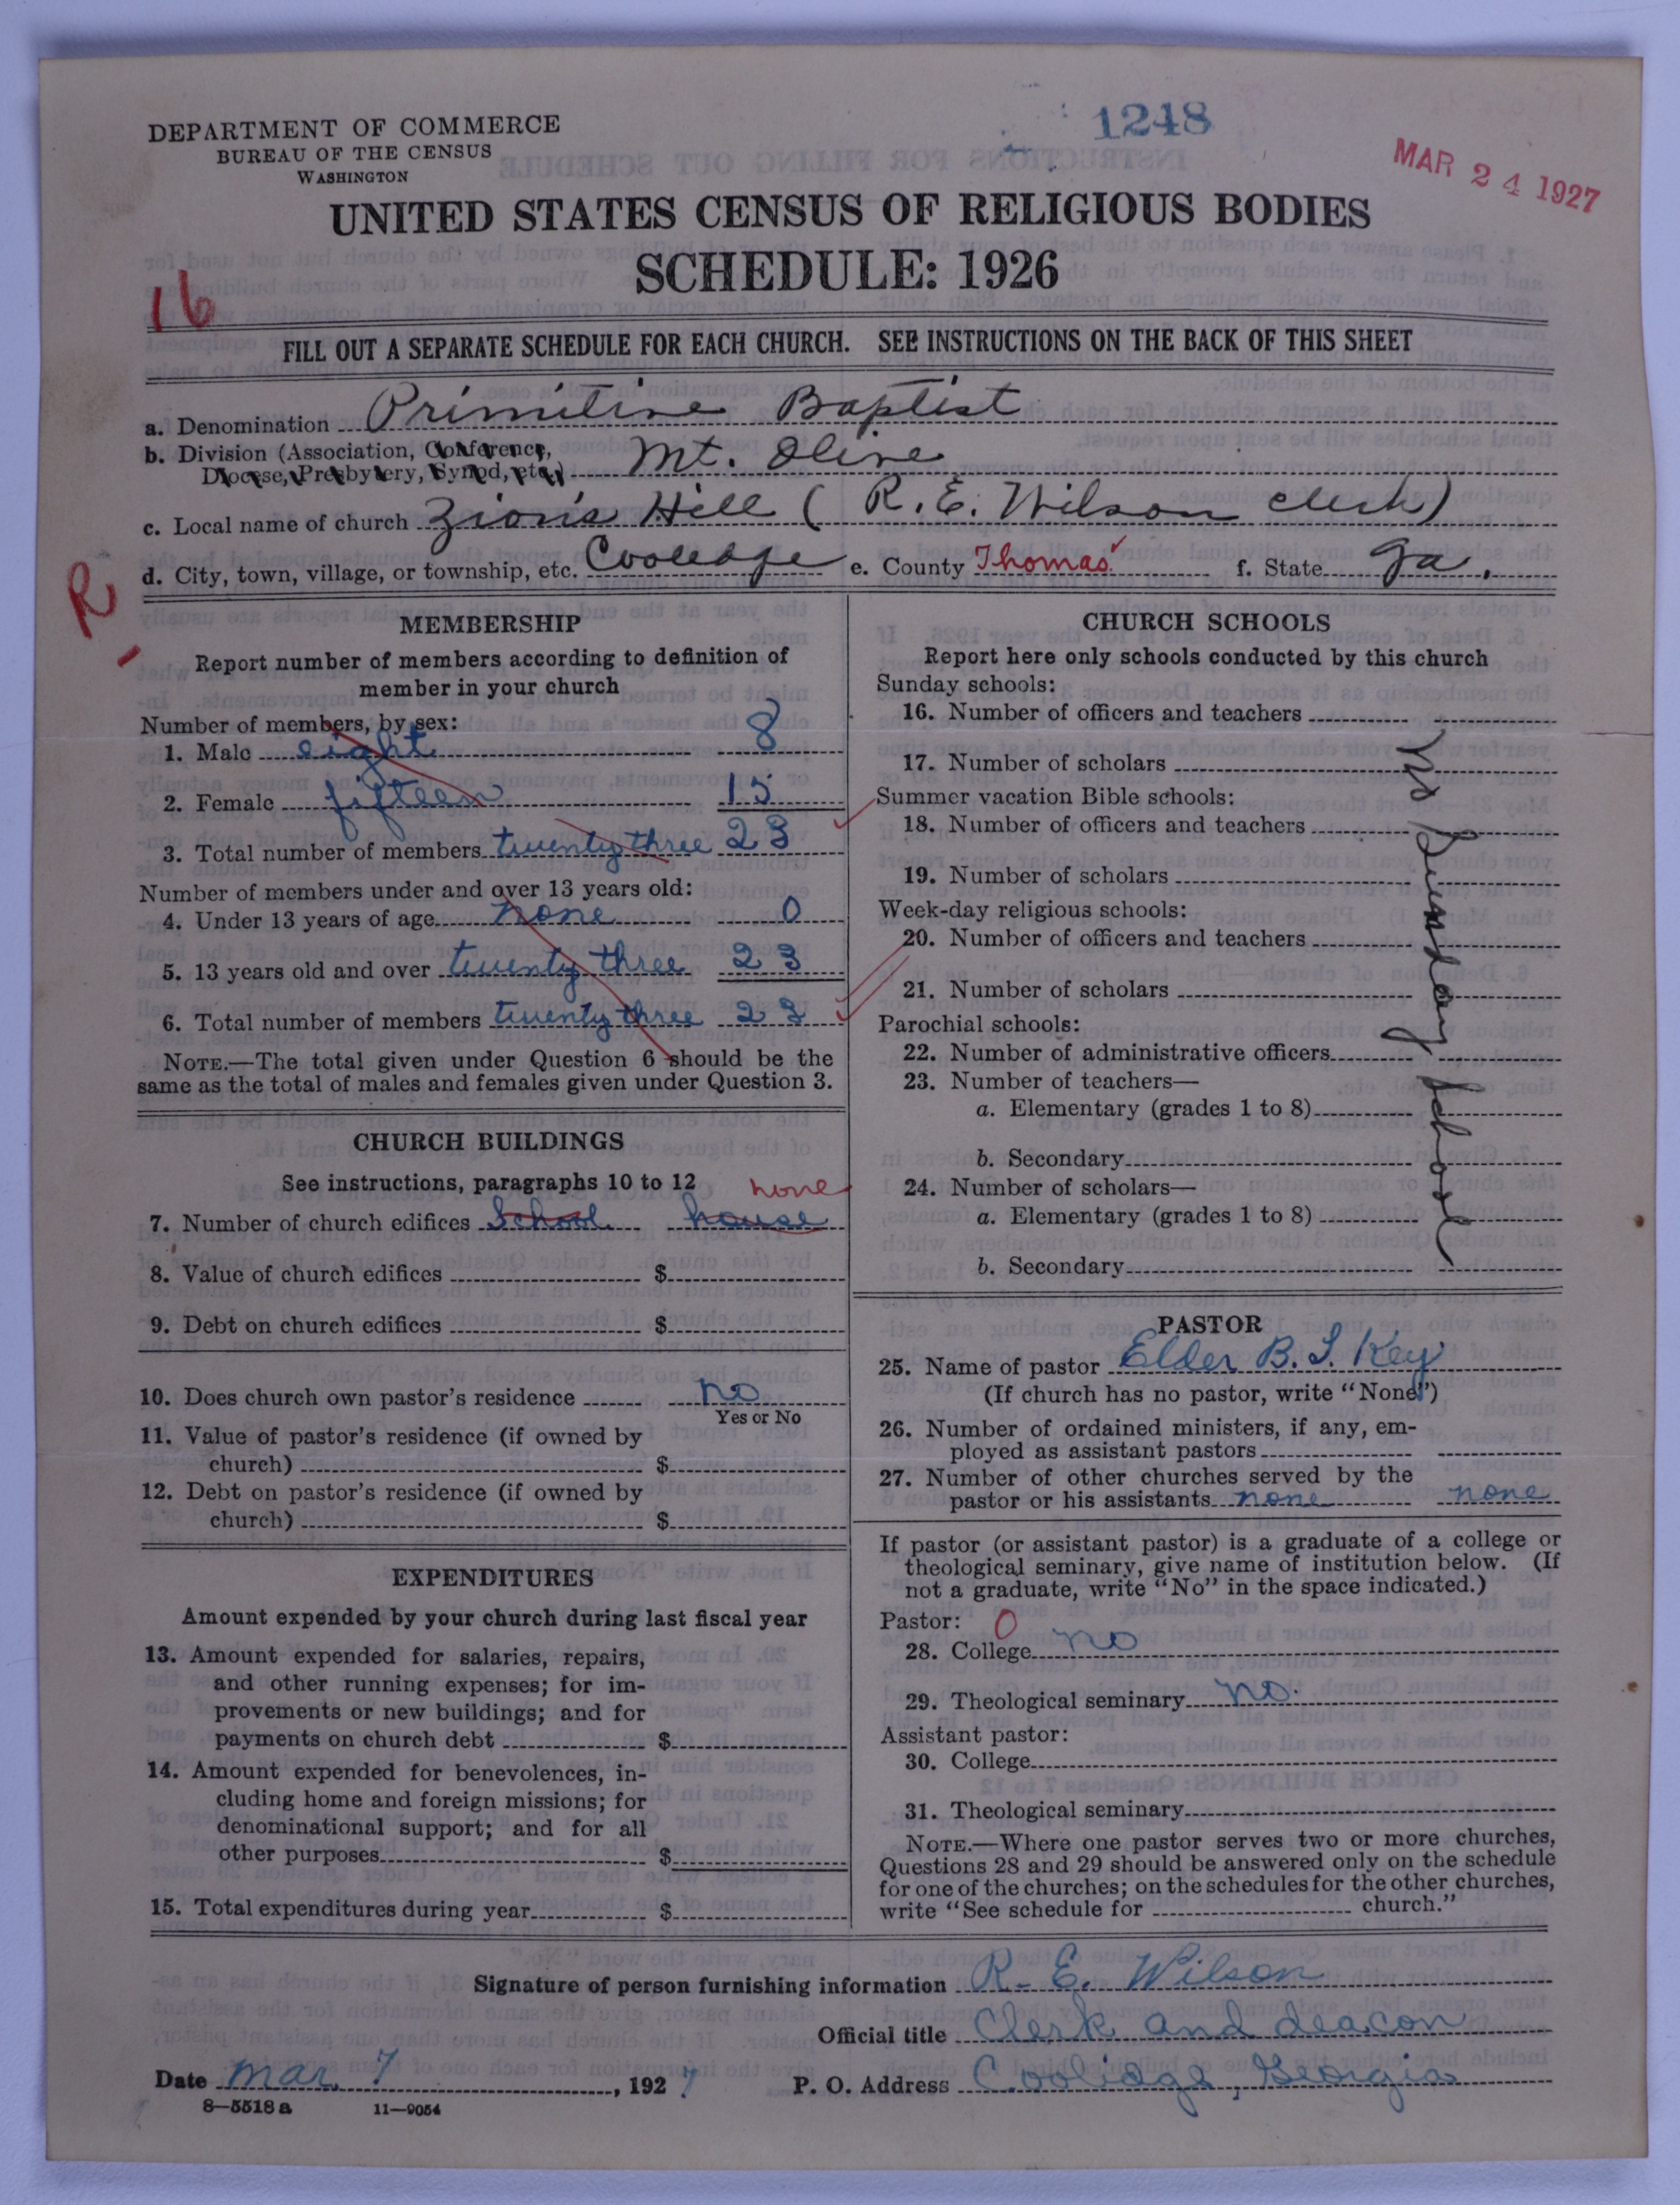 1248
MAR 24 1927
DEPARTMENT OF COMMERCE
BUREAU OF THE CENSUS
WASHINGTON
UNITED STATES CENSUS OF RELIGIOUS BODIES
SCHEDULE: 1926
16
FILL OUT A SEPARATE SCHEDULE FOR EACH CHURCH. SEE INSTRUCTIONS ON THE BACK OF THIS SHEET
a. Denomination Primitive Baptist
b. Division (Association, Conference,
Diocese, Presbytery, Synod, etc.) Mt. Olive
c. Local name of church Zion's Hill ( R. E. Wilson clerk)
d. City, town, village, or township, etc. Cooledge e. County Thomas f. State Ga.
R
MEMBERSHIP
Report number of members according to definition of
member in your church
Number of members, by sex:
1. Male eight 8
2. Female fifteen 15
3. Total number of members twenty three 23
Number of members under and over 13 years old:
4. Under 13 years of age none 0
5. 13 years old and over twenty three 23
6. Total number of members twenty three 23
NOTE.—The total given under Question 6 should be the
same as the total of males and females given under Question 3.
CHURCH BUILDINGS
See instructions, paragraphs 10 to 12
none
7. Number of church edifices School house
8. Value of church edifices $
9. Debt on church edifices $
10. Does church own pastor's residence no
Yes or No
11. Value of pastor's residence (if owned by
church) $
12. Debt on pastor's residence (if owned by
church) $
EXPENDITURES
Amount expended by your church during last fiscal year
13. Amount expended for salaries, repairs,
and other running expenses; for im-
provements or new buildings; and for
payments on church debt $
14. Amount expended for benevolences, in-
cluding home and foreign missions; for
denominational support; and for all
other purposes $
15. Total expenditures during year $
CHURCH SCHOOLS
Report here only schools conducted by this church
Sunday schools:
16. Number of officers and teachers
17. Number of scholars
Summer vacation Bible schools:
18. Number of officers and teachers
19. Number of scholars
Week-day religious schools:
20. Number of officers and teachers
21. Number of scholars
Parochial schools:
22. Number of administrative officers
23. Number of teachers—
a. Elementary (grades 1 to 8)
b. Secondary
24. Number of scholars—
a. Elementary (grades 1 to 8)
b. Secondary
No Sunday school
PASTOR
25. Name of pastor Elder B. S. Key
(If church has no pastor, write "None")
26. Number of ordained ministers, if any, em-
ployed as assistant pastors
27. Number of other churches served by the
pastor or his assistants none none
If pastor (or assistant pastor) is a graduate of a college or
theological seminary, give name of institution below. (If
not a graduate, write "No" in the space indicated.)
Pastor: 0
28. College no
29. Theological seminary no.
Assistant pastor:
30. College
31. Theological seminary
NOTE.—Where one pastor serves two or more churches,
Questions 28 and 29 should be answered only on the schedule
for one of the churches; on the schedules for the other churches,
write "See schedule for church."
Signature of person furnishing information R. E. Wilson
Official title Clerk and deacon
Date Mar. 7, 1927 P. O. Address Coolidge, Georgia
8—5518a 11—9054